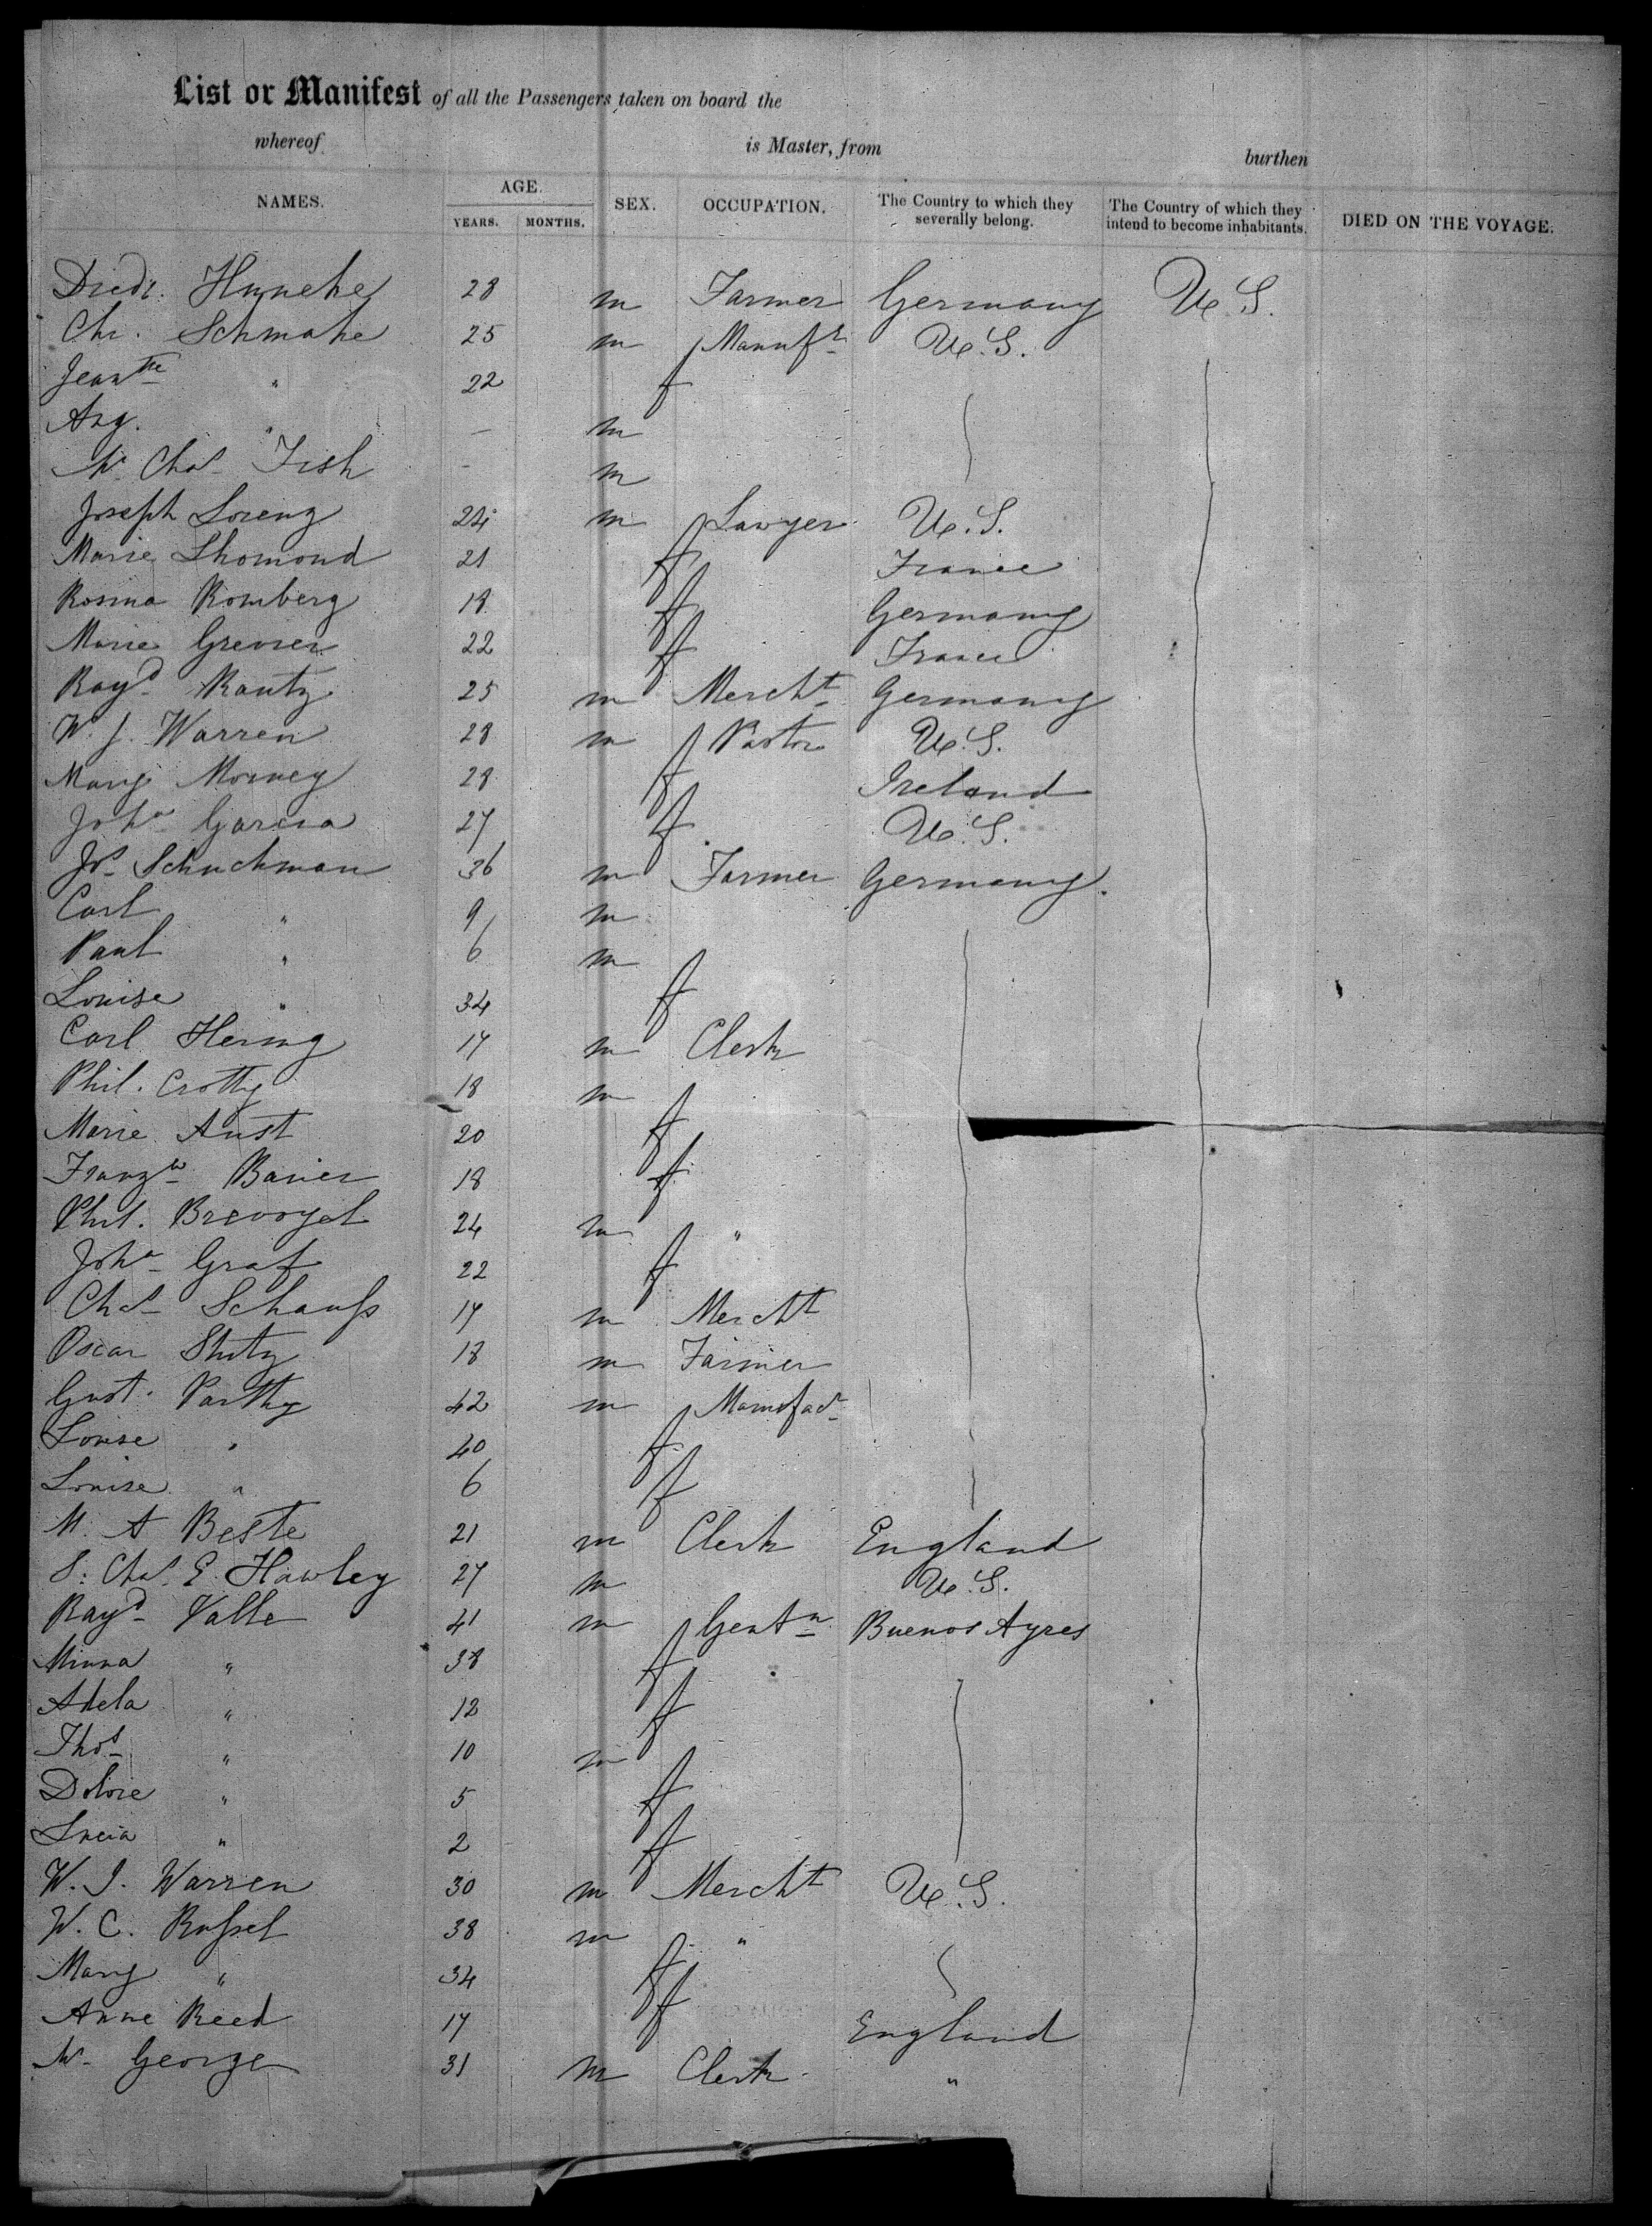 List or Manifest of all the Passengers taken on board the
whereof is Master, from burthen
NAMES. AGE. YEARS. MONTHS. SEX. OCCUPATION. The Country to which they severally belong. The Country of which they intend to become inhabitants. DIED ON THE VOYAGE.
Diedr. Huneke 28 m Farmer Germany U.S.
Chr. Schmahe 25 m Manufr U.S.
Jeantte " 22 f
Aug. " — m
Mr Chas Fish - m
Joseph Lorenz 24 m Lawyer U.S.
Marie Lhomond 21 f France
Rosina Romberg 18 f Germany
Marie Grevier 22 f France
Rayd Rautz 25 m Mercht Germany
W. J. Warren 28 m Pastor U.S.
Mary Morney 28 f Ireland
Joha Garcia 27 f U.S.
Js Schuchman 36 m Farmer Germany.
Carl " 9 m
Paul " 6 m
Louise " 34 f
Carl Hering 17 m Clerk
Phil. Crotty 18 m
Marie Aust 20 f
Franza Bauer 18 f
Phil. Brevogel 24 m "
Joha Graf 22 f
Chs Schauss 17 m Mercht
Oscar Stutz 18 m Farmer
Gust. Parthy 42 m Manufacr
Louise " 40 f
Louise " 6 f
M. A Beste 21 m Clerk England
S. Chas. E. Hawley 27 m U.S.
Rayd Valle 41 m Gentn Buenos Ayres
Minna " 38 f
Adela " 12 f
Thos " 10 m
Dolore " 5 f
Lucia " 2 f
W. J. Warren 30 m Mercht U.S.
W. C. Russel 38 m "
Mary " 34 f
Anne Reed 17 f England
Mr George 31 m Clerk "